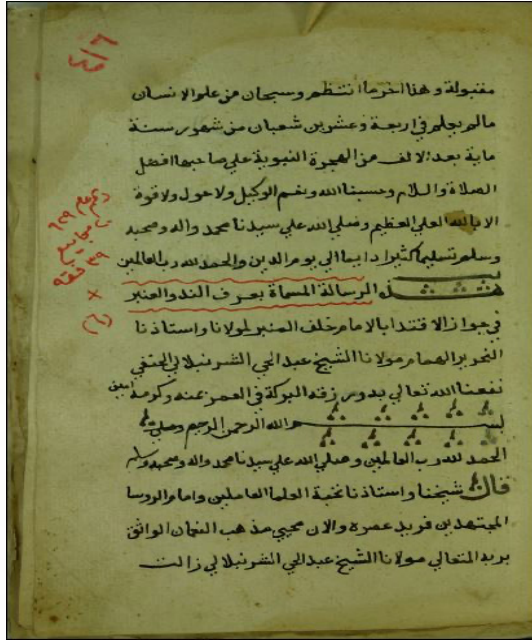 مقبولة وهذا اخر ما انتظم وسبحان من علم الانسان
مالم يعلم في اربعة وعشرين شعبان من شهور سنة
ماية بعد الالف من الهجرة النبوية علي صاحبها افضل
الصلاة والسلام وحسبنا الله ونعم الوكيل ولا حول ولا قوة
الا بالله العلي العظيم وصلي الله علي سيدنا محمد واله وصحبه
وسلم تسليما كثيرا دايما الي يوم الدين والحمد لله رب العالمين
هذه الرسالة المسماة بعرف الند والعنبر
في جواز الاقتدا بالامام خلف المنبر لمولانا واستاذنا
النحرير الهمام مولانا الشيخ عبد الحي الشرنبلالي الحنفي
نفعنا الله تعالي بدوم رزقه البركة في العمر عنه وكرمه امين
بسم الله الرحمن الرحيم وصلي
الحمد لله رب العالمين وصلي الله علي سيدنا محمد واله وصحبه وسلم
قال شيخنا واستاذنا نخبة العلما العاملين وامام الروسا
المجتهدين فريد عصره والان محيي مذهب النعمان الواثق
بربه المتعالي مولانا الشيخ عبد الحي الشرنبلالي زالت
عام ٦٢٩
مجاميع
٣٩ فقه